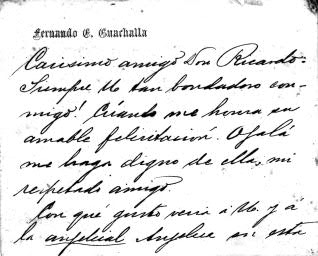 Fernando E. Guachalla
Carisimo amigo Don Ricardo:
Siempre U. tan bondadoso con-
migo! Cuánto me honra su
amable felicitación. Ojalá
me haga digno de ella, mi
respetado amigo.
Con qué gusto vería á U. y á
la angelical Angélica en esta